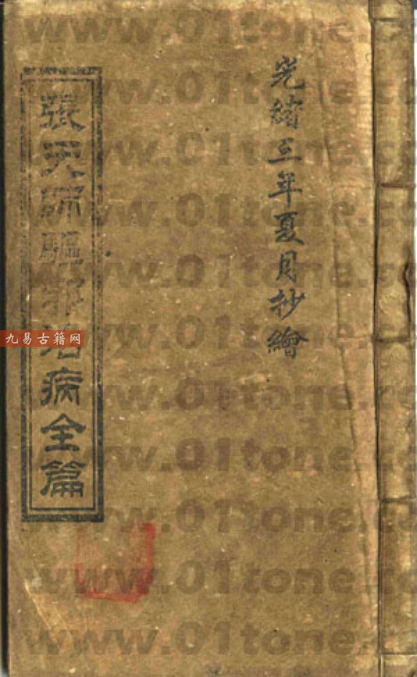 光緒三年夏月抄繪
張天師驅邪治病全篇
九易古籍网
www.01tone.c
www.01tone.c
www.01tone.c
www.01tone.c
www.01tone.c
www.01tone.c
www.01tone.c
www.01tone.c
www.01tone.c
www.01tone.c
www.01tone.c